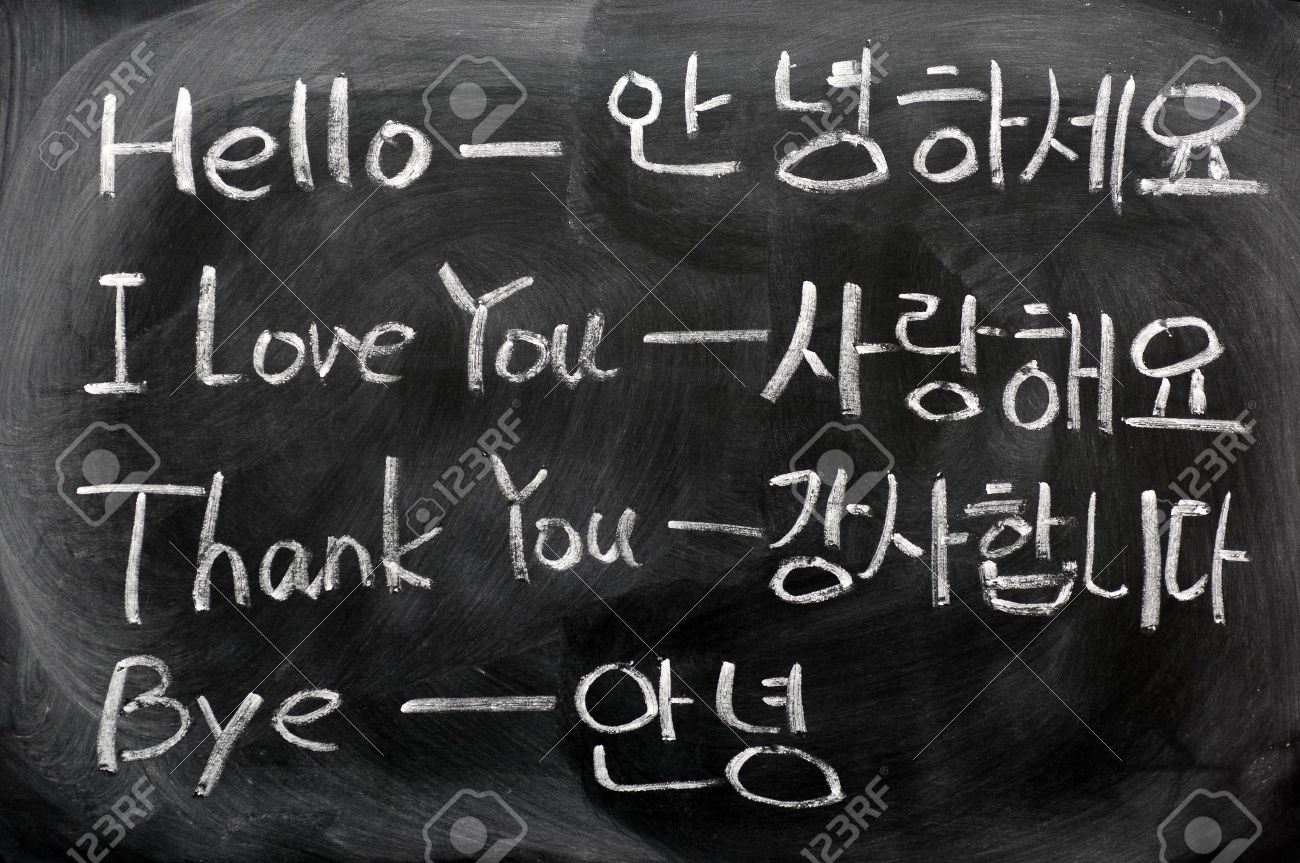 123RF
123RF
Hello — 안녕하세요
I Love You — 사랑해요
123RF
123RF
Thank You — 강사합니다
Bye — 안녕
123RF
123RF